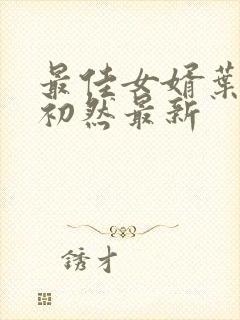 最佳女婿葉
初然最新
锈才